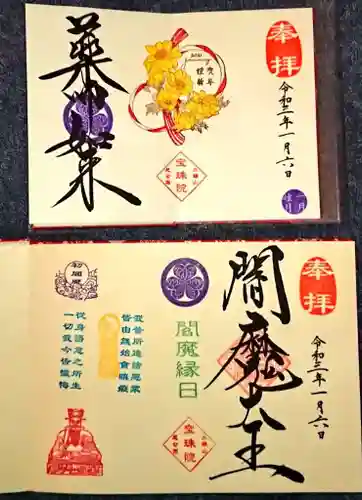 奉拝
令和三年一月六日
一月
睦月
謹賀新年
薬師如来
宝珠院
奉拝
令和三年一月六日
閻魔大王
閻魔縁日
宝珠院
我昔所造諸悪業
皆由無始貪瞋癡
従身語意之所生
一切我今皆懺悔
初閻魔